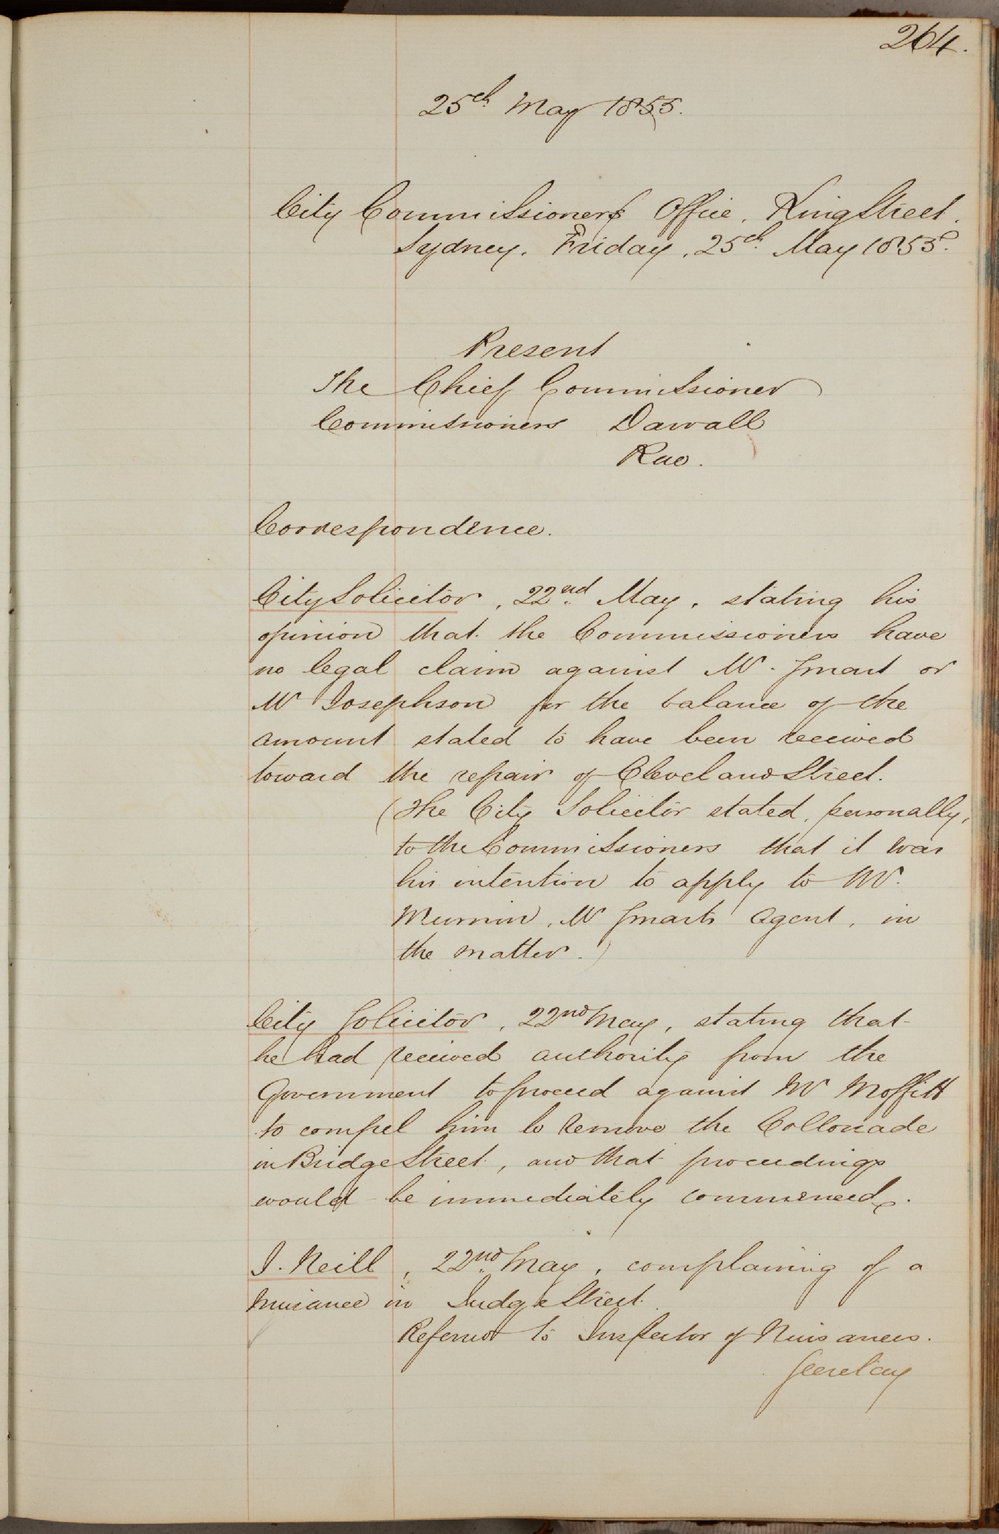 264.
25th May 1855.
City Commissioners Office, King Street,
Sydney, Friday, 25th May 1855.
Present
The Chief Commissioner
Commissioners Darvall
Rae.
Correspondence.
City Solicitor, 22nd May, stating his
opinion that the Commissioners have
no legal claim against Mr. Smart or
Mr Josephson for the balance of the
amount stated to have been received
toward the repair of Cleveland Street.
(The City Solicitor stated, personally,
to the Commissioners that it was
his intention to apply to Mr.
Murnin, Mr Smarts Agent, in
the matter.)
City Solicitor, 22nd May, stating that
he had received authority from the
Government to proceed against Mr Moffitt
to compel him to remove the Collonade
in Bridge Street, and that proceedings
would be immediately commenced.
J. Neill, 22nd May, complaining of a
nuisance in Judge Street.
Referred to Inspector of Nuisances.
Secretary